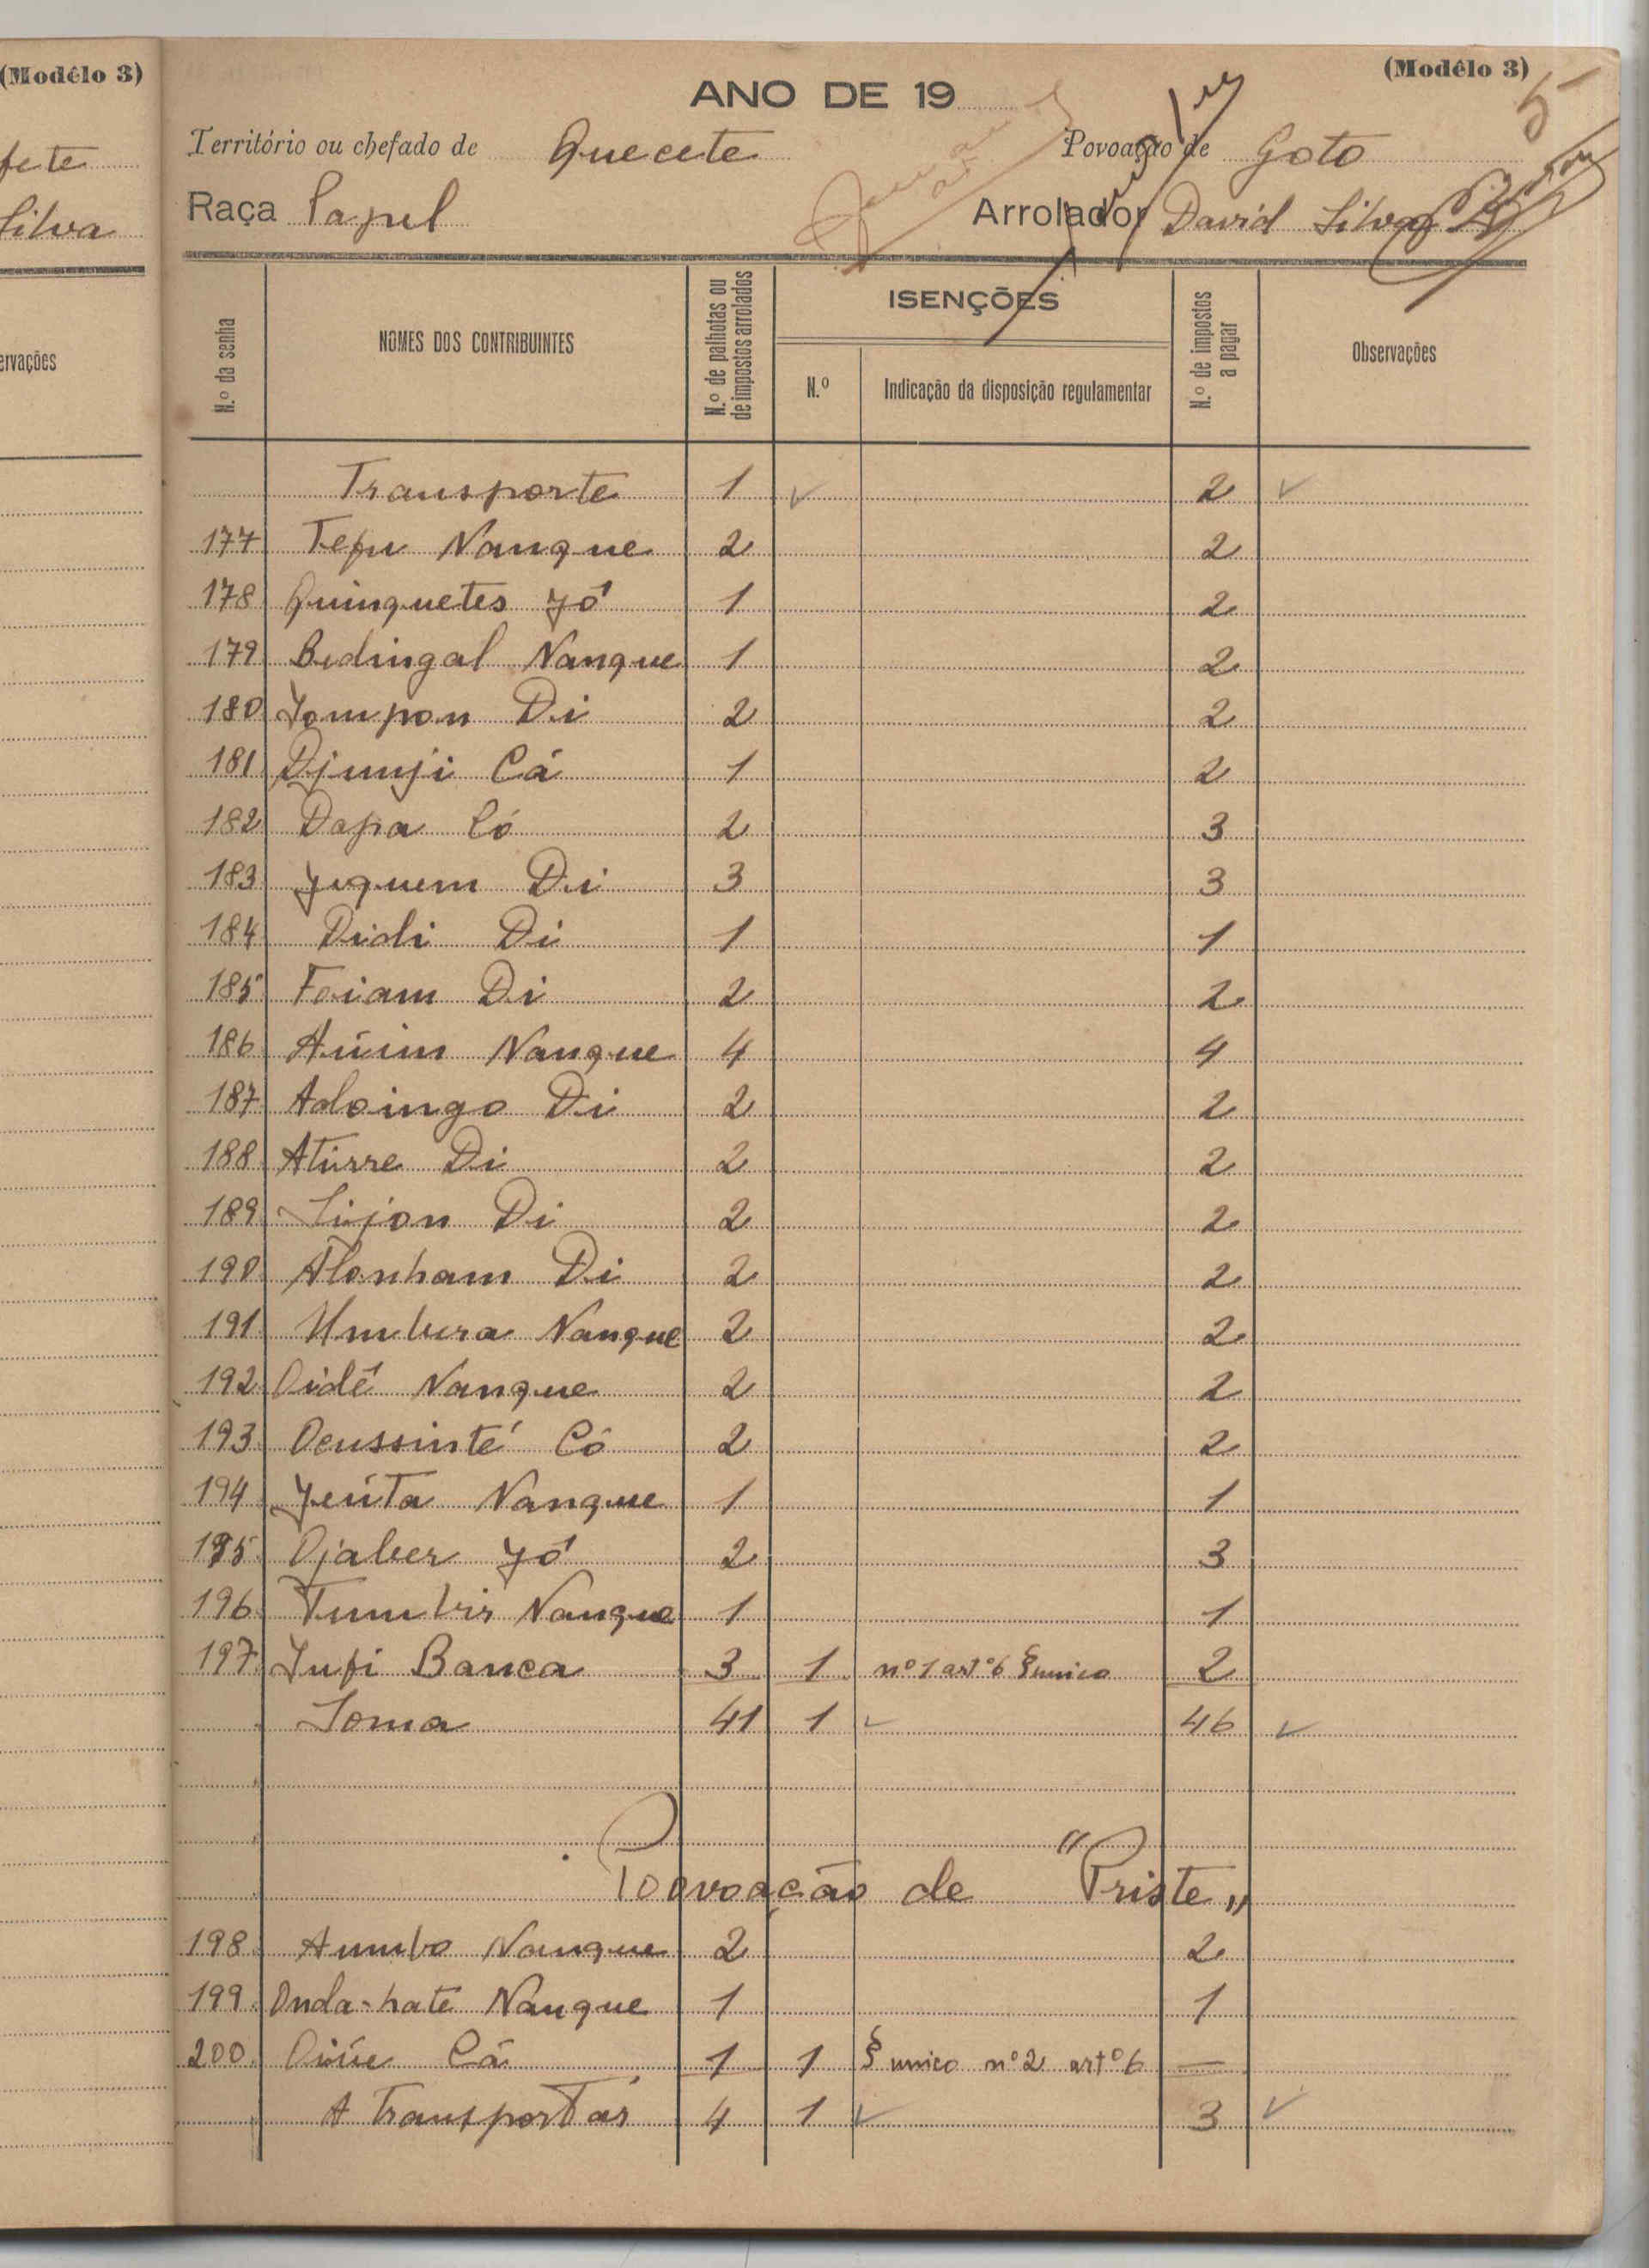 (Modêlo 3)
fete
Silva
ervações
(Modêlo 3)
5
ANO DE 19
Território ou chefado de Quecete Povoação de Goto
Raça Papel Arrolador David Silva
N.º da senha
NOMES DOS CONTRIBUINTES
N.º de palhotas ou de impostos arrolados
ISENÇÕES
N.º
Indicação da disposição regulamentar
N.º de impostos a pagar
Observações
Transporte 1 ✓ 2 ✓
177 Tepu Nanque 2 2
178 Quinquetes Yó 1 2
179 Bedingal Nanque 1 2
180 Jompon Di 2 2
181 Djunji Cá 1 2
182 Dapa Có 2 3
183 Jequem Di 3 3
184 Didi Di 1 1
185 Foiam Di 2 2
186 Aúim Nanque 4 4
187 Adoingo Di 2 2
188 Atúrre Di 2 2
189 Sijon Di 2 2
190 Alonham Di 2 2
191 Umbera Nanque 2 2
192 Oidé Nanque 2 2
193 Ocussinté Có 2 2
194 Jeúta Nanque 1 1
195 Ojaber Yó 2 3
196 Tumbir Nanque 1 1
197 Jufi Banca 3 1 nº 1 artº 6 § unico 2
Soma 41 1 ✓ 46 ✓
Poovoação de "Priste„
198 Aumbo Nanque 2 2
199 Onda-haté Nanque 1 1
200 Oiúe Cá 1 1 § unico nº 2 artº 6 —
A Transportar 4 1 ✓ 3 ✓